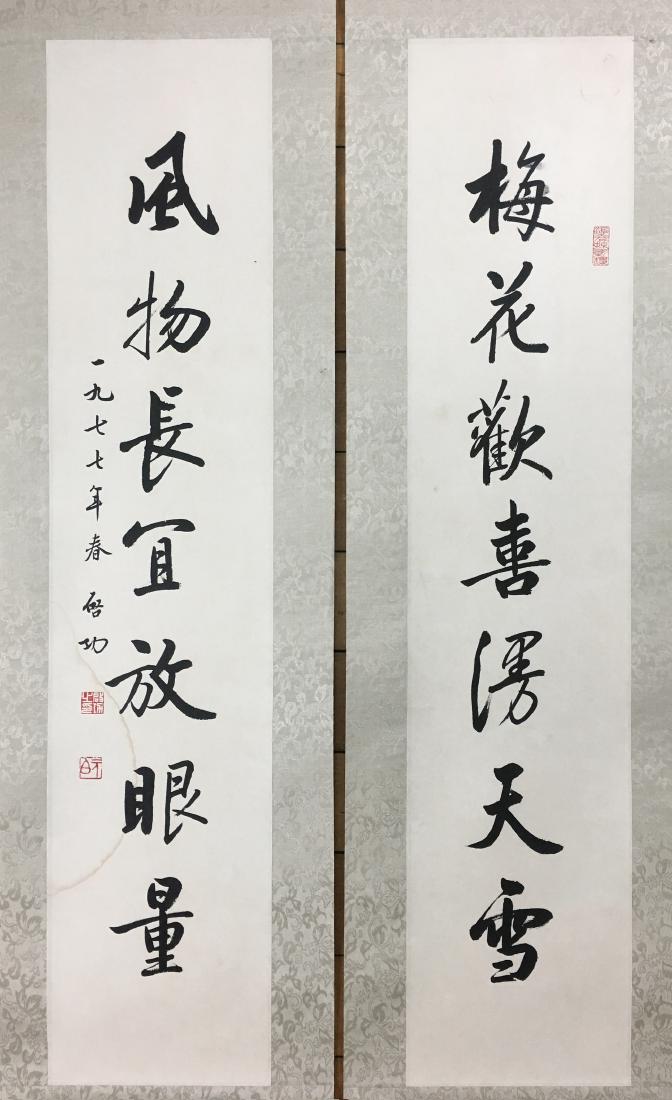 梅花歡喜漫天雪
風物長宜放眼量
一九七七年春 啓功